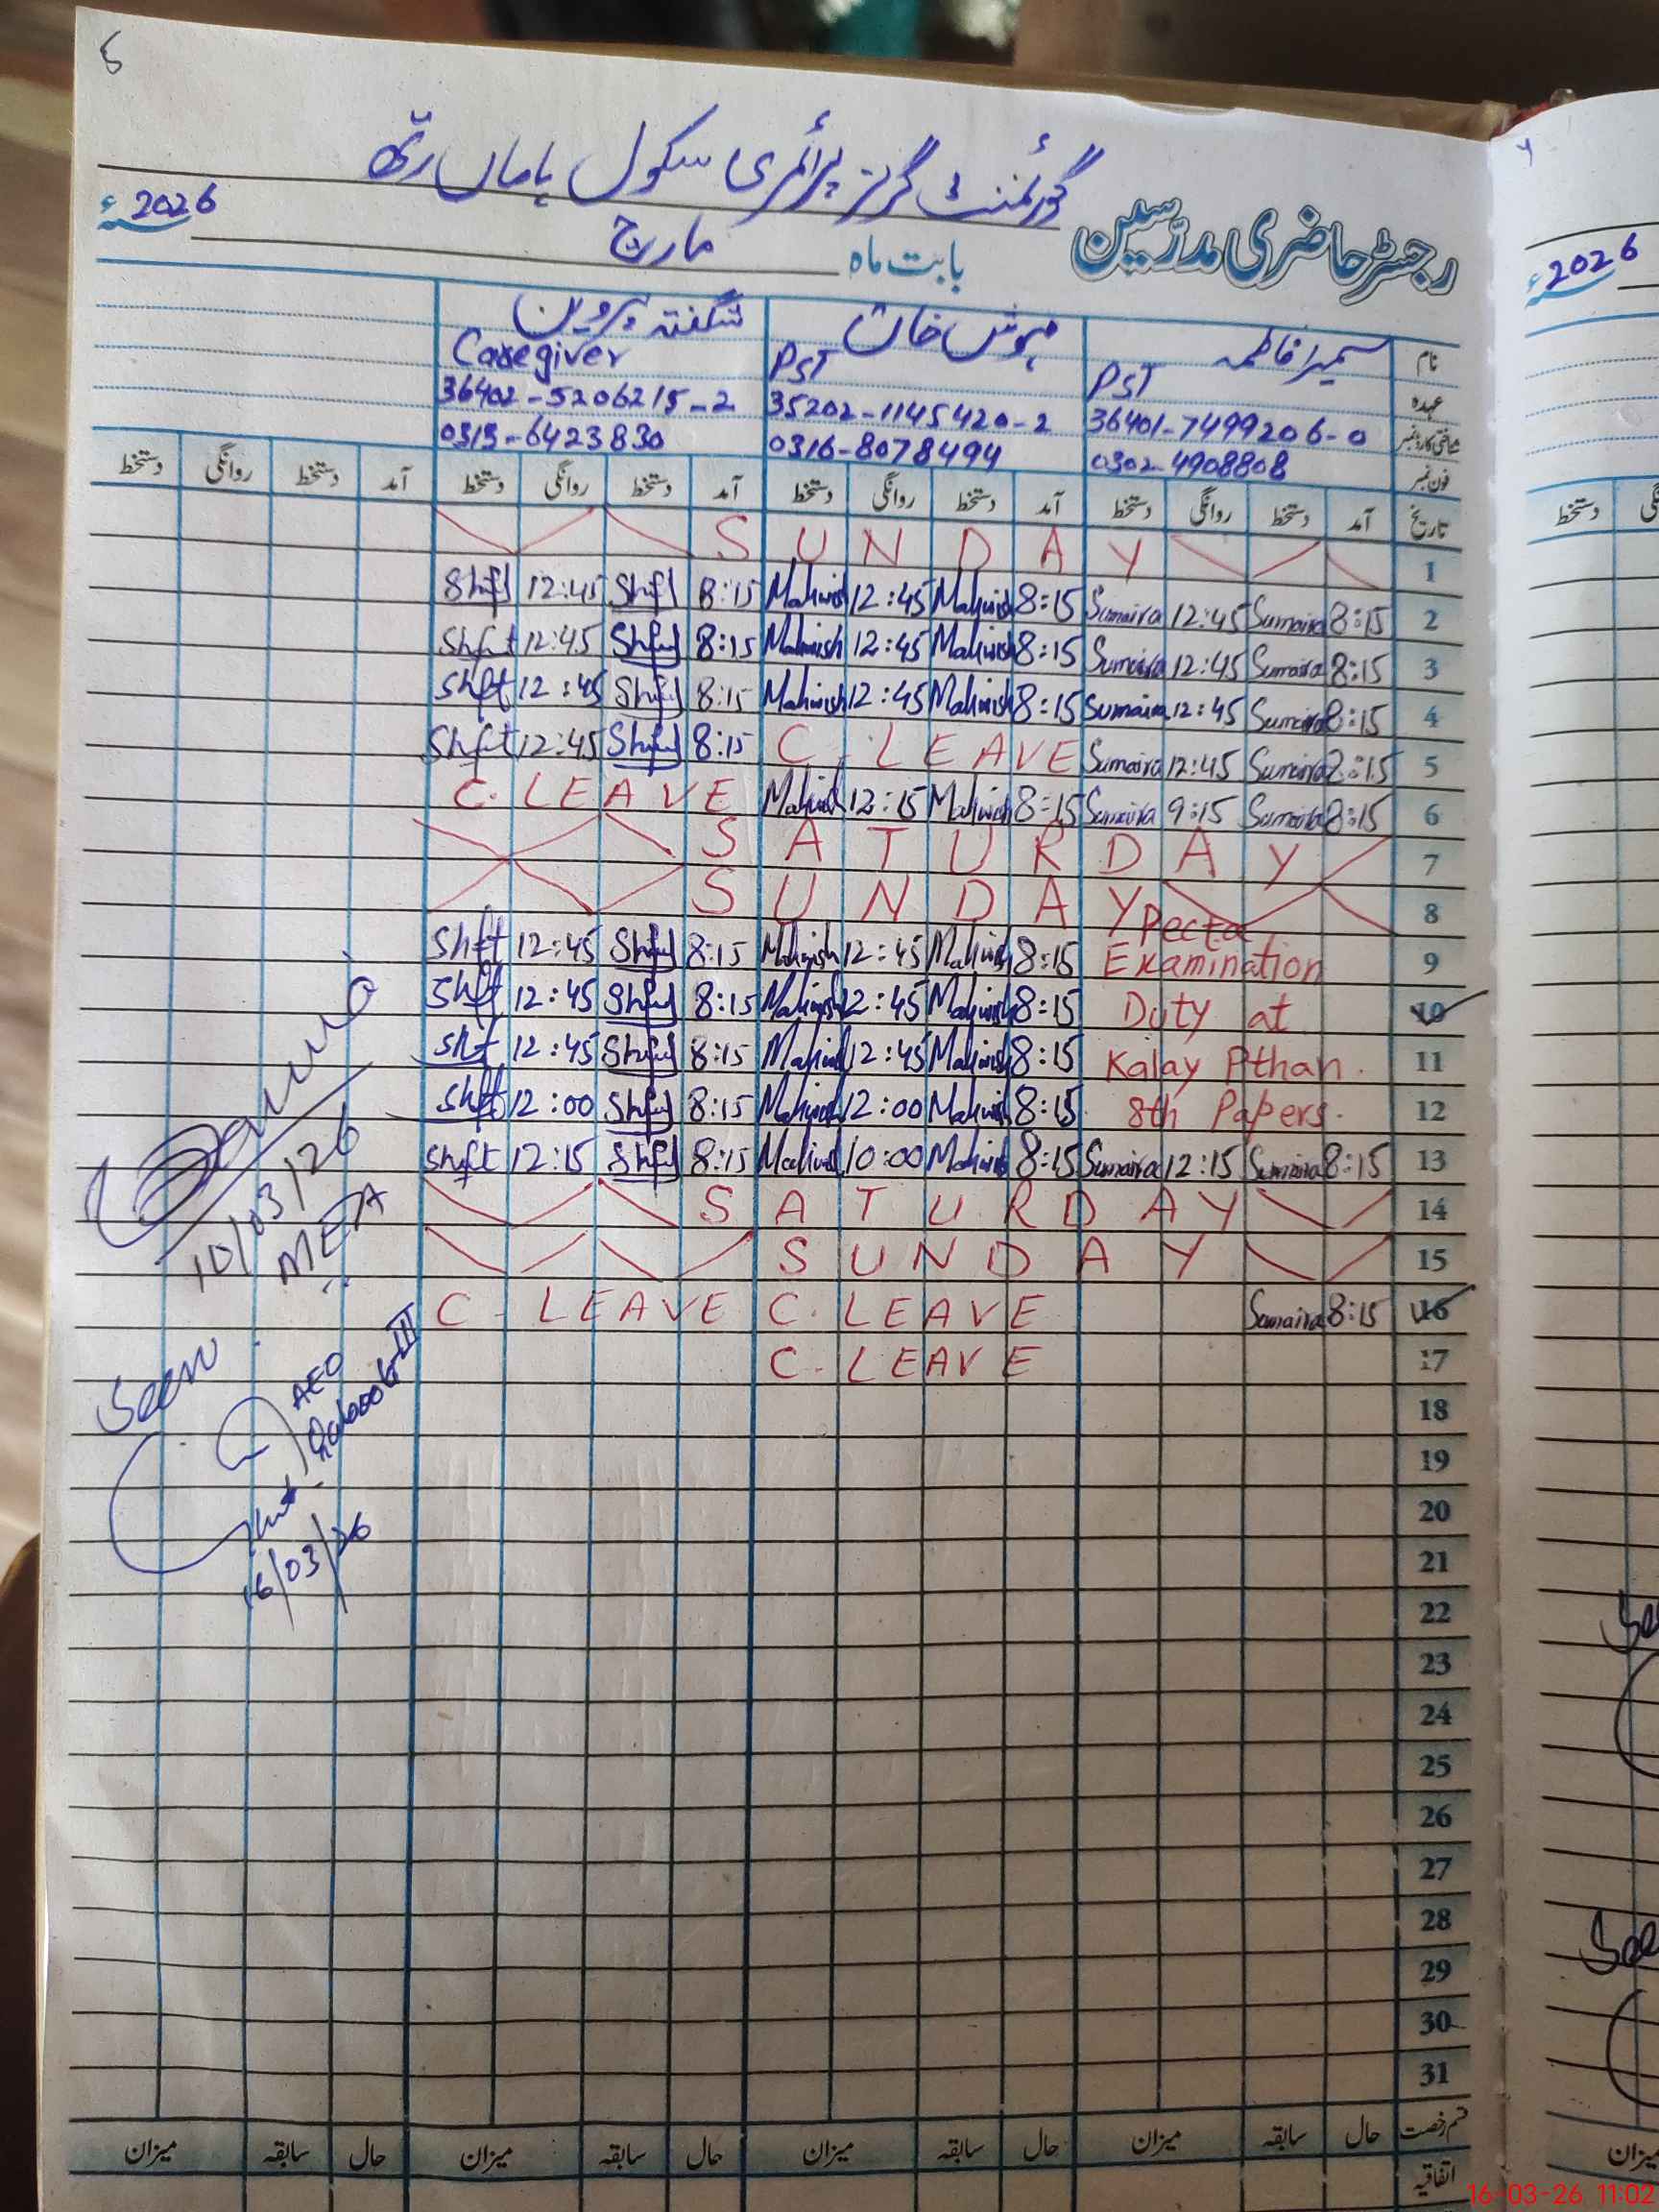 5
گورنمنٹ گرلز پرائمری سکول
رجسٹر حاضری مدرسین
بابت ماہ مارچ 2026ء
نام سمیرا فاطمہ مہوش خان شگفتہ پروین
عہدہ PST PST Caregiver
36401-7499206-0 35202-1145420-2 36402-5206215-2
فون نمبر 0302-4908808 0316-8078494 0315-6423830
تاریخ آمد دستخط روانگی دستخط آمد دستخط روانگی دستخط آمد دستخط روانگی دستخط آمد دستخط روانگی دستخط
SUNDAY 1
Shft 12:45 Shft 8:15 Mahwish 12:45 Mahwish 8:15 Sumaira 12:45 Sumaira 8:15 2
Shft 12:45 Shft 8:15 Mahwish 12:45 Mahwish 8:15 Sumaira 12:45 Sumaira 8:15 3
Shft 12:45 Shft 8:15 Mahwish 12:45 Mahwish 8:15 Sumaira 12:45 Sumaira 8:15 4
Shft 12:45 Shft 8:15 C. LEAVE Sumaira 12:45 Sumaira 8:15 5
C. LEAVE Mahwish 12:15 Mahwish 8:15 Sumaira 9:15 Sumaira 8:15 6
SATURDAY 7
SUNDAY 8
Shft 12:45 Shft 8:15 Mahwish 12:45 Mahwish 8:15 Pecta Examination 9
Shft 12:45 Shft 8:15 Mahwish 12:45 Mahwish 8:15 Duty at 10
Shft 12:45 Shft 8:15 Mahwish 12:45 Mahwish 8:15 Kalay Pthan. 11
Shft 12:00 Shft 8:15 Mahwish 12:00 Mahwish 8:15 8th Papers. 12
Shft 12:15 Shft 8:15 Mahwish 10:00 Mahwish 8:15 Sumaira 12:15 Sumaira 8:15 13
SATURDAY 14
SUNDAY 15
C. LEAVE C. LEAVE Sumaira 8:15 16
C. LEAVE 17
18
19
20
21
22
23
24
25
26
27
28
29
30
31
10/03/26
MEA
Seen
AEO
16/03/26
قسم رخصت حال سابقہ میزان حال سابقہ میزان حال سابقہ میزان حال سابقہ میزان
اتفاقیہ
2026ء
دستخط
میزان
16-03-26 11:02